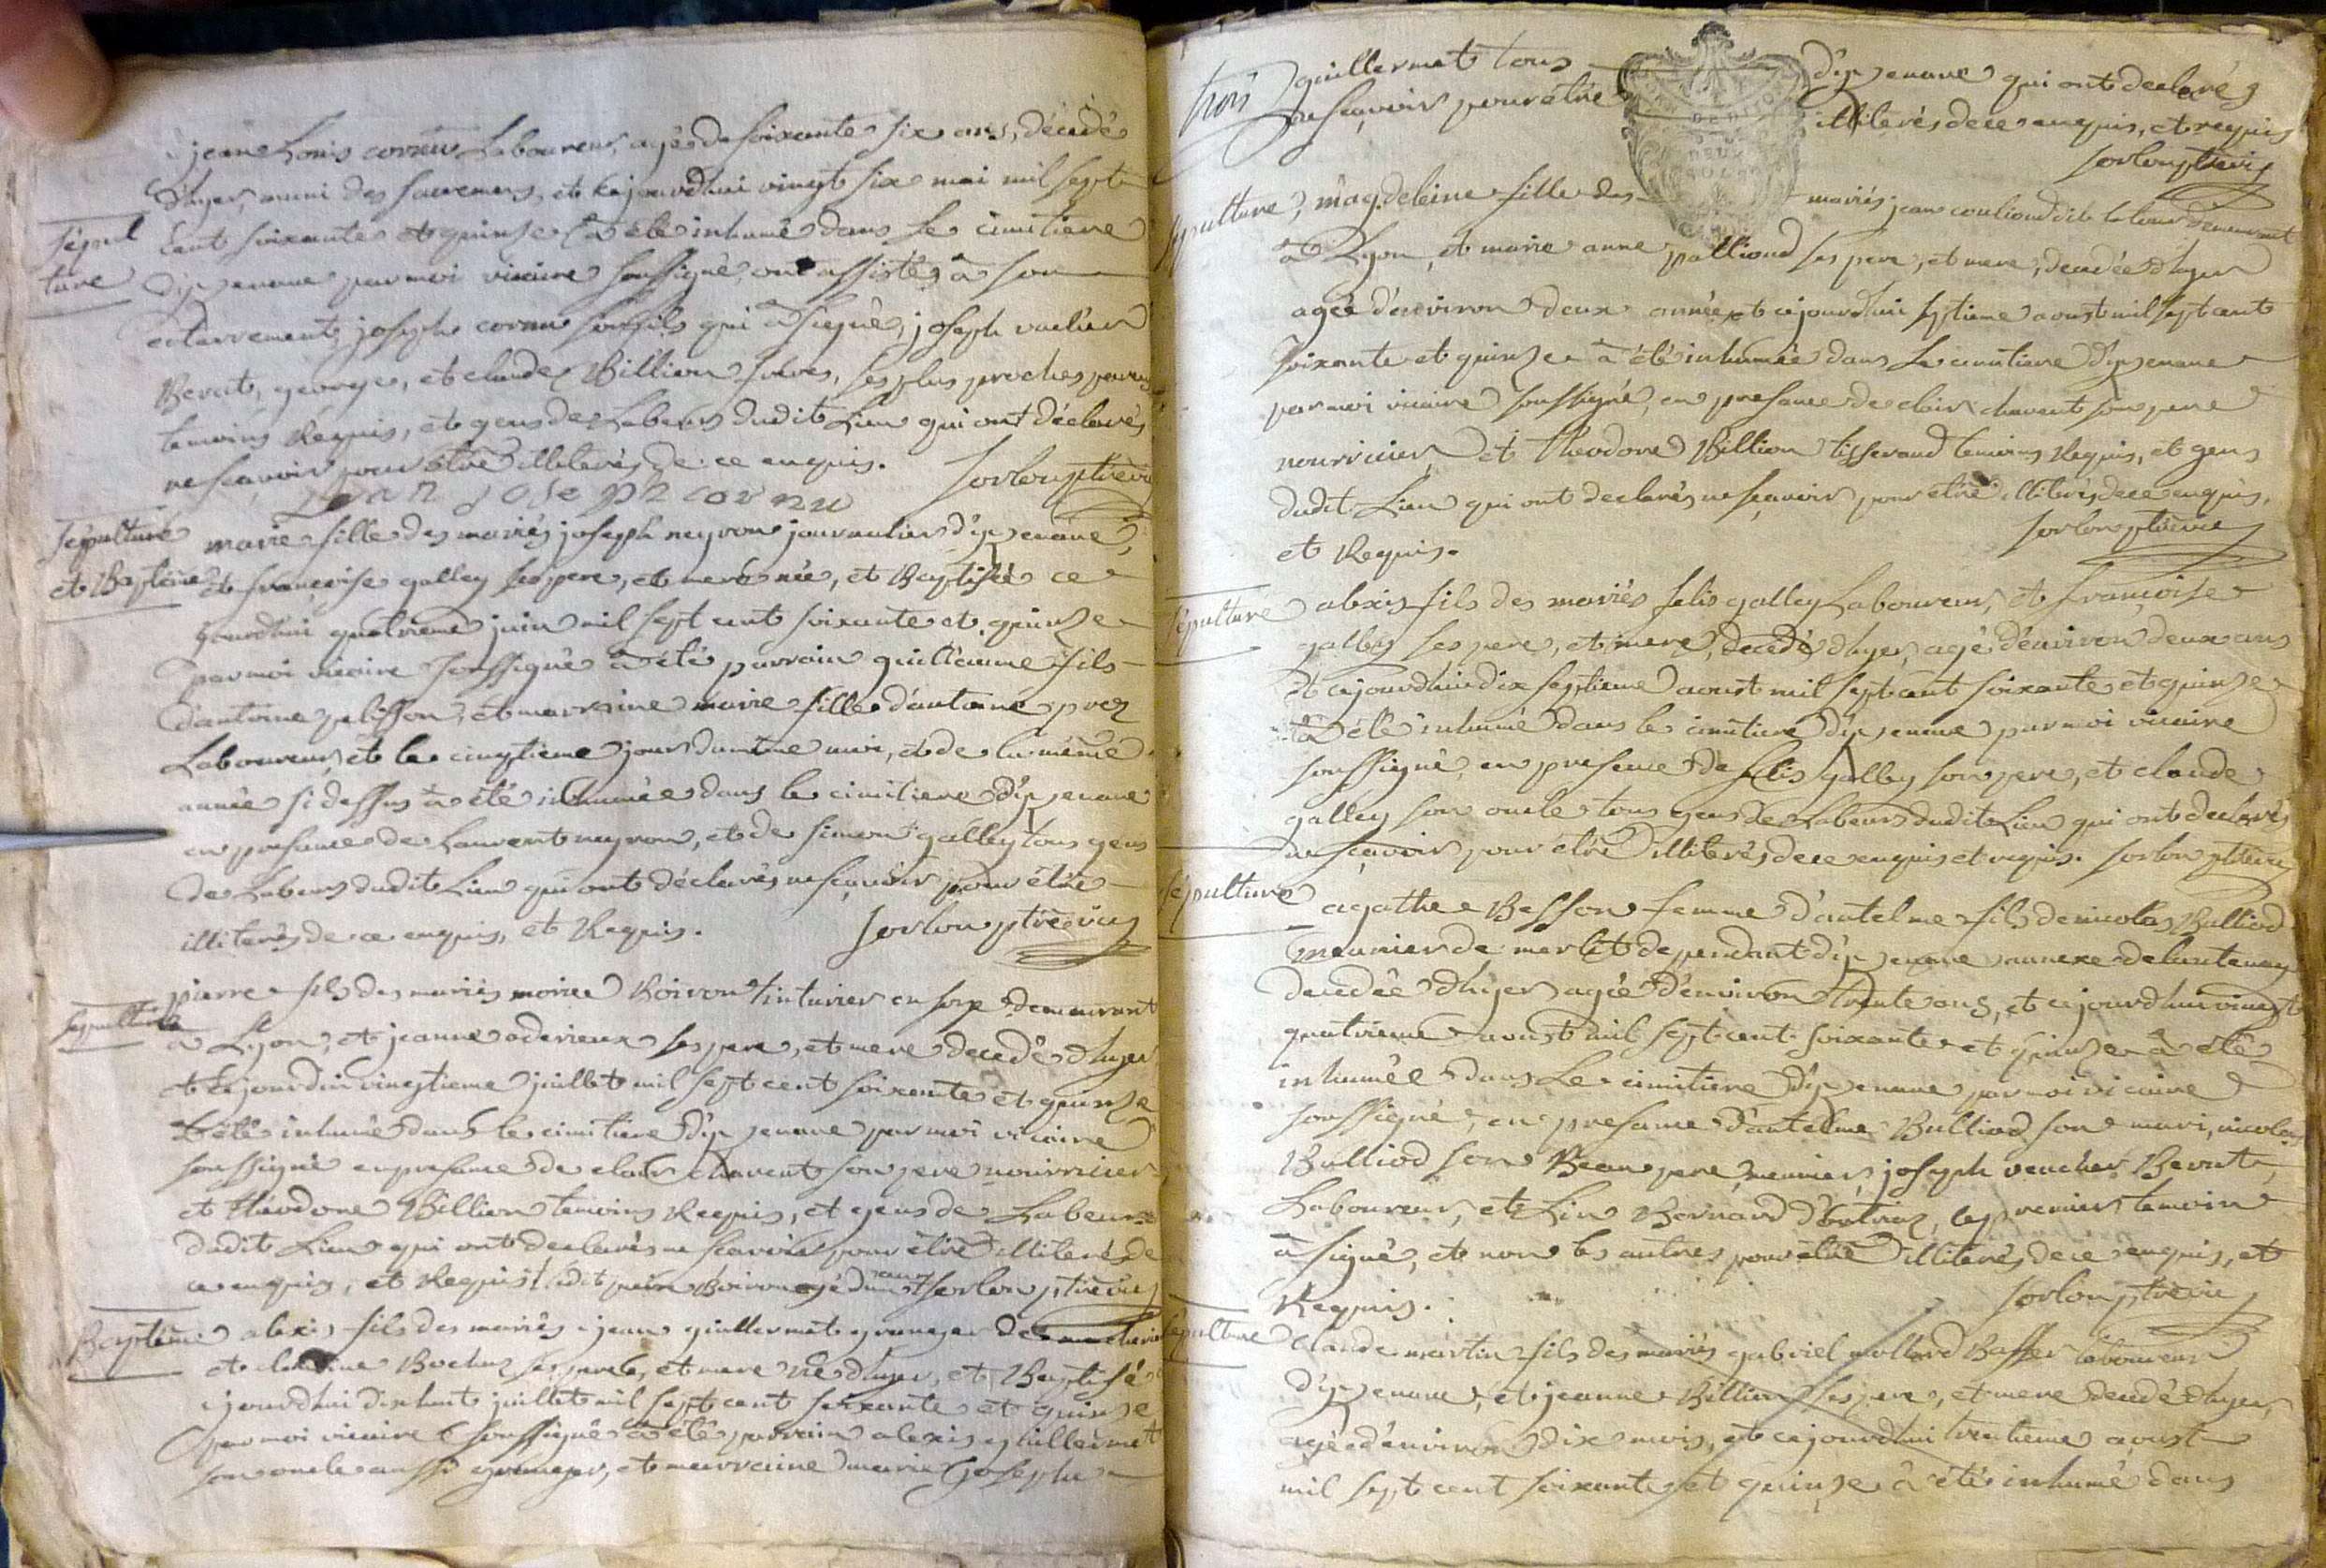 jean Louis cornu Laboureur, agé de soixante six ans, décédé
d'hyer, muni des sacremens, et cejourdhui vingt six mai mil sept
Sépul
ture
cent soixante et quinse à été inhumé dans le cimitiere
d'ypenave par moi vicaire soussigné, ont assistés à son
enterrement, joseph cornu son fils qui à signé, joseph vuclier
Berut, george, et claude Billion freres, ses plus proches parens
temoins Requis, et gens de Labeur dudit Lieu qui ont déclarés
ne sçavoir pour être illiterés de ce enquis. Sorlon ptre vic
jean joseph cornu
Sépulture
et Baptême
marie fille des mariés joseph neyron journalier d'ypenave,
et françoise galley ses pere, et mere née, et Baptisée ce
jourdhui quatrieme juin mil sept cent soixante et quinse
par moi vicaire soussigné à été parrain guillaume fils
d'antoine pelisson, et marraine marie fille d'antoine prez
Laboureur, et le cinqtieme jour du même moi, et de la même
année si dessus à été inhumée dans le cimitiere d'ypenave
en presence de Laurent neyron, et de simon galley tous gens
de Labeur dudit Lieu qui ont déclarés ne sçavoir pour être
illiterés de ce enquis, et Requis. Sorlon ptre vic
Sepulture
pierre fils des mariés Boiron tinturier en soye demeurant
à Lyon, et jeanne aderieux ses pere, et mere decedé d'hyer
et cejourdhui vingtieme juillet mil sept cent soixante et quinse
à été inhumé dans le cimitiere d'ypenave par moi vicaire
soussigné en presence de clair chavent son pere nourricier
et théodore Billion temoins Requis, et gens de Labeur
dudit Lieu qui ont declarés ne sçavoir pour être illiterés de
ce enquis, et Requis. ledit Boiron agé d'un an Sorlon ptre vic
Baptême
alexis fils des mariés jean guillermet granger de
et claudine Bochuz ses pere, et mere né d'hyer, et Baptisé
cejourdhui dixhuit juillet mil sept cent soixante et quinse
par moi vicaire soussigné à été parrain alexis guillermet
son oncle aussi granger, et marraine marie josephe
trois
guillermet tous d'ypenave qui ont declarés
ne sçavoir pour être illiterés de ce enquis, et requis
Sorlon ptre vic
Sepulture
magdeleine fille des mariés jean coulioud dit la tour demeurant
à Lyon, et marie anne pallioud ses pere, et mere, decedée d'hyer
agée d'environ deux année, et cejourdhui septieme aoust mil sept cent
soixante et quinse à été inhumée dans le cimitiere d'ypenave
par moi vicaire soussigné, en presence de clair chavent son pere
nourricier, et théodore Billion tisserand temoins Requis, et gens
dudit Lieu qui ont declarés ne sçavoir pour etre illiterés de ce enquis,
et Requis. Sorlon ptre vic
Sépulture
alexis fils des mariés felix galley Laboureur, et françoise
galley ses pere, et mere, decedé d'hyer, agé d'environ deux ans
et cejourdhui dix septieme aoust mil sept cent soixante et quinse
à été inhumé dans le cimitiere d'ypenave par moi vicaire
soussigné, en presence de felix galley son pere, et claude
galley son oncle tous gens de Labeur dudit Lieu qui ont declarés
ne sçavoir pour être illiterés de ce enquis et requis. Sorlon ptre vic
Sépulture
agathe Besson femme d'antelme fils de nicolas Bulliod
meunier de merlet dependant d'ypenave annexe de lantenay
decedée d'hyer agée d'environ trente ans, et cejourdhui vingt
quatrieme aoust mil sept cent soixante et quinse à été
inhumée dans Le cimitiere d'ypenave par moi vicaire
soussigné, en presence d'antelme Bulliod son mari, nicolas
Bulliod son Beau pere, meunier, joseph vucher Berut,
Laboureur, et Lin Bernard d'outriaz, le premier temoin
à signé, et non les autres pour être illiterés de ce enquis, et
Requis. Sorlon ptre vic
Sépulture
claude martin fils des mariés gabriel mollard Baffer laboureur
d'ypenave, et jeanne Billion ses pere, et mere decedé d'hyer,
agé d'environ dix mois, et cejourdhui trentieme aoust
mil sept cent soixante, et quinse à été inhumé dans